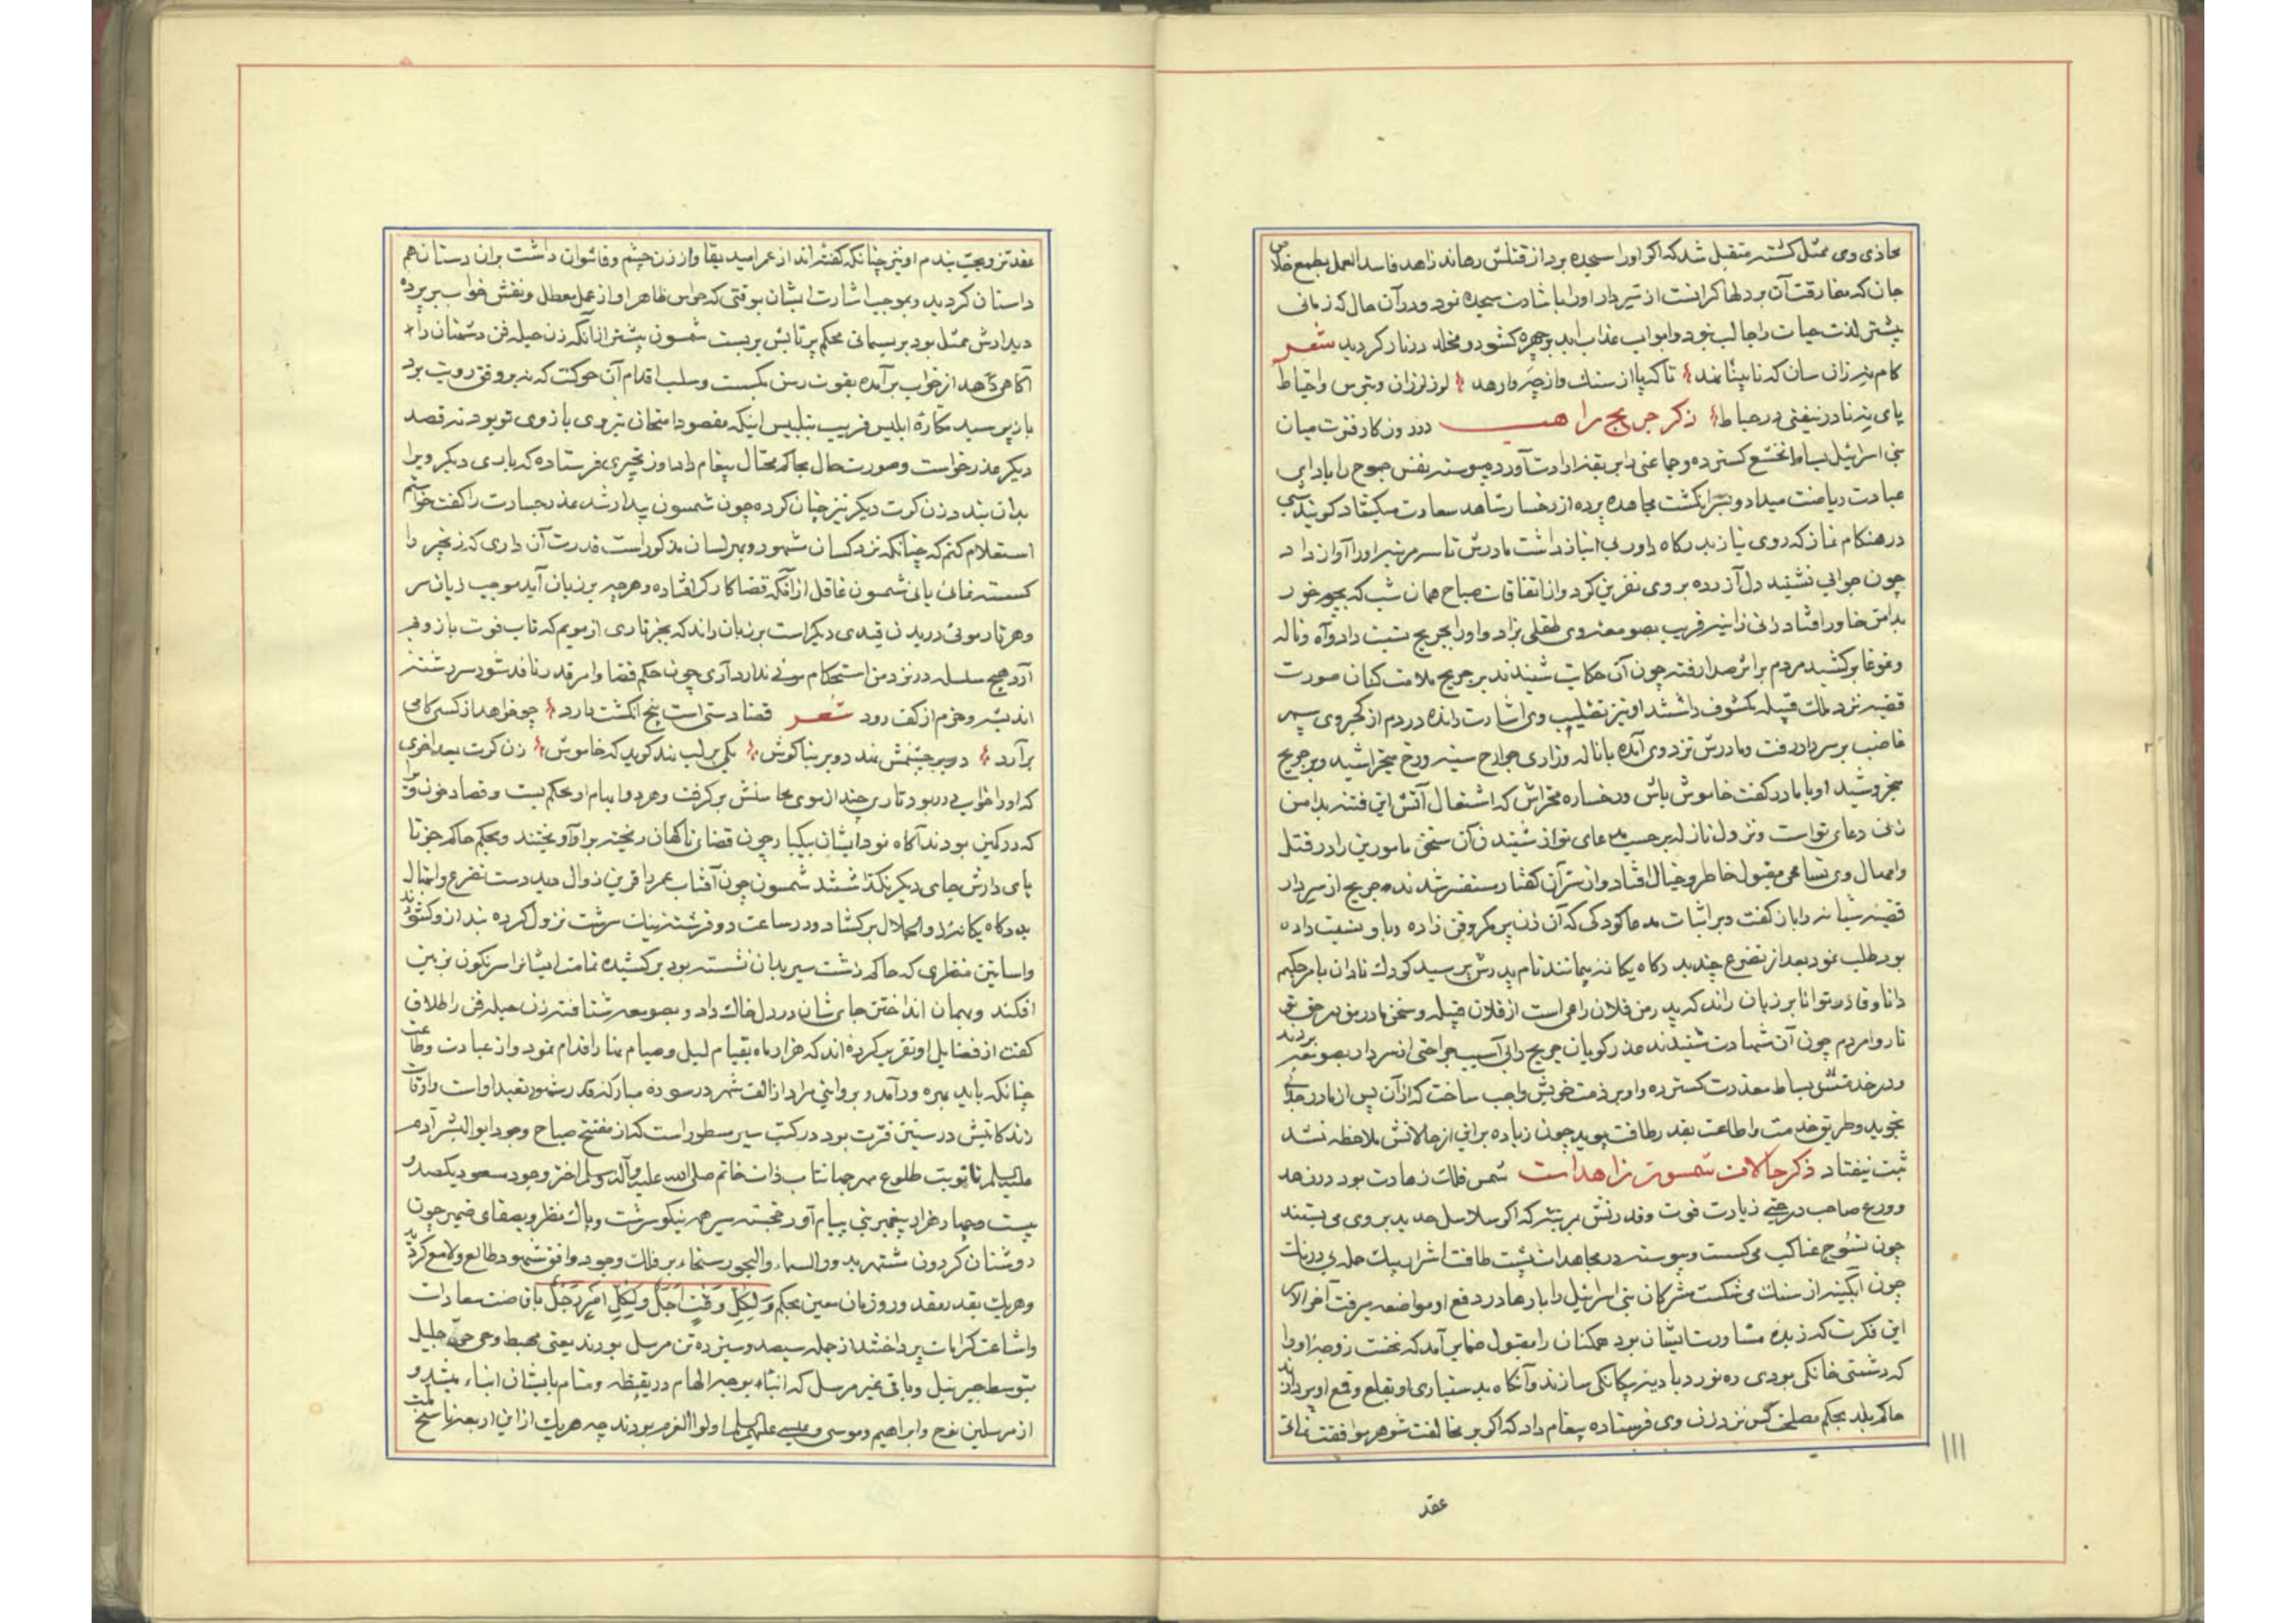 محاذی وی ممثل کشته متقبل شد که اگر او را سجده برد از قتلش رهاند زاهد فاسد العمل بطمع خلاص
جان که مفارقت آن بر دلها گرانست از تیر دار او را باشارت سجده نمود و در آن حال که زمانی
پیشتر لذت حیات را جالب نبود و ابواب عذاب ابد بر چهره گشود و مخلد در نار گردید شعر
کام نیز زان سان که نابینا نهند تا که پا از سنک و از چه وارهد لرز لرزان و بترس و احتیاط
پای نه تا در نیفتی در حباط ذکر جریج راهب در روزکار فترت میان
بنی اسرائیل بساط تخشع گسترده و جماعتی را بربقه ارادت آورده پیوسته نفس جموح را باداب
عبادت ریاضت میداد و بسر انگشت مجاهده پرده از رخسار شاهد سعادت میکشاد گویند شبی
در هنکام نماز که روی نیاز بدرگاه داور بی انباز داشت مادرش تا سه مرتبه او را آواز داد
چون جوابی نشنید دل آزرده بر وی نفرین کرد و از اتفاقات صباح همان شب که خور
بدامن خاور افتاد زنی زانیه قریب بصومعه وی طفلی بزاد و او را بجریج نسبت داد و آه و ناله
و غوغا برکشید مردم بر اثر صدا رفته چون آن حکایت شنیدند بر جریج ملامت کنان صورت
قضیه نزد ملک قبیله مکشوف داشتند او نیز بتصلیب وی اشارت رانده در دم از کجروی سپهر
غاضب بر سر دار رفت و مادرش نزد وی آمده با ناله و زاری جوارح سینه و رخ میخراشید و بر جریج
میخروشید او با مادر گفت خاموش باش و رخساره مخراش که اشتعال آتش این فتنه بدامن
زدن دعای تو است و نزول نازله برحسب مدعای تو از شنیدن آن سخن مامورین را در قتل
و امهال وی تسامحی مقبول خاطر و خیال افتاد و از سر آن گفتار مستفسر شدند جریج از سر دار
قضیه شبانه را باز گفت و بر اثبات مدعا کودکی که آن زن پر مکر و فن زاده و باو نسبت داده
بود طلب نمود بعد از تضرع چند بدرگاه یگانه بیمانند نام پدرش پرسید کودک نادان بامر حکیم
دانا و قادر توانا بر زبان راند که پدر من فلان راعی است از قلان قبیله و سخن مادر من در حق تو
ناروا مردم چون آن شهادت شنیدند عذر گویان جریج را بی آسیب جراحتی از سر دار بصومعه بردند
و در خدمتش بساط معذرت گسترده و او بر ذمت خویش واجب ساخت که از آن پس از مادر جدائی
نجوید و طریق خدمت و اطاعت بقدر طاقت پوید چون زیاده بر این از حالاتش ملاحظه نشد
ثبت نیفتاد ذکر حالات شمسون زاهد است شمس فلک زهادت بود در زهد
و ورع صاحب درجتی زیادت قوت و قدرتش بمرتبتی که اگر سلاسل حدید بر وی می بستند
چون نسوج عناکب می گسست و پیوسته در مجاهدات پشت طاقت اشرار بیک حمله بی درنک
چون آبگینه از سنک می شکست مشرکان بنی اسرائیل را بارها در دفع او مواضعه میرفت آخر الامر
این فکرت که زبده مشاورت ایشان بود همکنان را مقبول ضمایر آمد که نخست زوجه او را
که دشمنی خانگی بودی ره نورد بادیه بیگانگی سازند و آنگاه بدستیاری او بقلع و قمع او پردازند
حاکم بلد بحکم مصلحت کس نزد زن وی فرستاده پیغام داد که اگر بر مخالفت شوهر موافقت نمائی
عقد
۱۱۱
عقد تزویجت بندم او نیز چنانکه گفته اند از عمر امید بقا و از زن چشم وفا نتوان داشت بران دستان هم
داستان گردید و بموجب اشارت ایشان بوقتی که حواس ظاهر او از عمل معطل و نقش خواب بر پرده
دیدارش ممثل بود بریسمانی محکم سر تا پایش بر بست شمسون پیشتر از آنکه زن حیله فن دشمنان را
آگاهی دهد از خواب برآمده بقوت رسن بگسست و سبب اقدام آن حرکت که نه بر وفق رویت بود
باز پرسید مکاره ابلیس فریب بتلبیس اینکه مقصود امتحان نیروی بازوی تو بود نه قصد
دیگر عذر خواست و صورت حال بحاکم محتال پیغام داد او زنجیری فرستاده که باری دیگر ویرا
بدان بندد زن کرت دیگر نیز چنان کرده چون شمسون بیدار شد عذر جسارت را گفت خواستم
استعلام کنم که چنانکه نزد کسان مشهور و بهر لسان مذکور است قدرت آن داری که زنجیر را
گسسته نمائی یا نی شمسون غافل از آنکه قضا کارگر افتاده و هرچه بر زبان آید موجب زیان سر
و هر تار موئی در بدن قیدی دیگر است بر زبان راند که بجز تاری از مویم که تاب قوت بازو فرو
آرد هیچ سلسله در نزد من استحکام موئی ندارد آری چون حکم قضا و امر قدر نافذ شود سررشته
اندیشه و حزم از کف رود شعر قضا دستی است پنج انگشت دارد چو خواهد از کسی کامی
برآرد دو بر چشمش نهد دو بر بناگوش یکی بر لب نهد گوید که خاموش زن کرت بعد اخری
که او را خواب در ربود تاری چند از موی محاسنش برگرفت و هر دو ابهام او محکم بست و قصاد خون
که در کمین بودند آگاه نمود ایشان بیکبار چون قضای ناگهان ریخته بر او آویختند و بحکم حاکم جز تا
پای دارش جای دیگر نگذاشتند شمسون چون آفتاب عمر را قرین زوال دید دست تضرع و ابتهال
بدرگاه یگانه ذو الجلال برگشاد و در ساعت دو فرشته نیک سرشت نزول کرده بند از وی گشودند
و اساتین منظری که حاکم دشت سیر بدان نشسته بود برکشیده تمامت ایشانرا سرنگون بزمین
افکند و بهمان انداختن جای شان در دل خاک داد و بصومعه شتافته زن حیله فن را طلاق
گفت از فضایل او تقریر کرده اند که هزار ماه بقیام لیل و صیام نهار اقدام نمود و از عبادت و طاعت
چنانکه باید بهره ور آمد و بروایتی مراد از الف شهر در سوره مبارکه قدر شهور تعبد او است و اوقات
زندگانیش در سنین فترت بود در کتب سیر مسطور است که از مفتتح صباح وجود ابو البشر آدم
علیه السلم تا نوبت طلوع مهر جهانتاب ذات خاتم صلی الله علیه وآله وسلم اختر وجود مسعود یکصد و
بیست و چهار هزار پیغمبر بنی پیام آور خجسته سیر همه نیکو سرشت و پاک نظر و بصفای ضمیر چون
روشنان گردون مشتهر بدور والسماء والنجوم سنجاء بر فلک وجود و افق شهود طالع و لامع گردید
و هر یک بقدر مقدر و روز زمان معین بحکم ولکل وقت اجل ولکل امر رجل بافاضت سعادات
و اشاعت کرامات پرداختند از جمله سیصد و سیزده تن مرسل بودند یعنی مهبط وحی حی جلیل
بتوسط جبرئیل و باقی غیر مرسل که انباء بوجه الهام در یقظه و منام بایشان انباء میشد و
از مرسلین نوح و ابراهیم و موسی و عیسی علیهم السلم اولوا العزم بودند چه هر یک از این اربعه ناسخ ملت